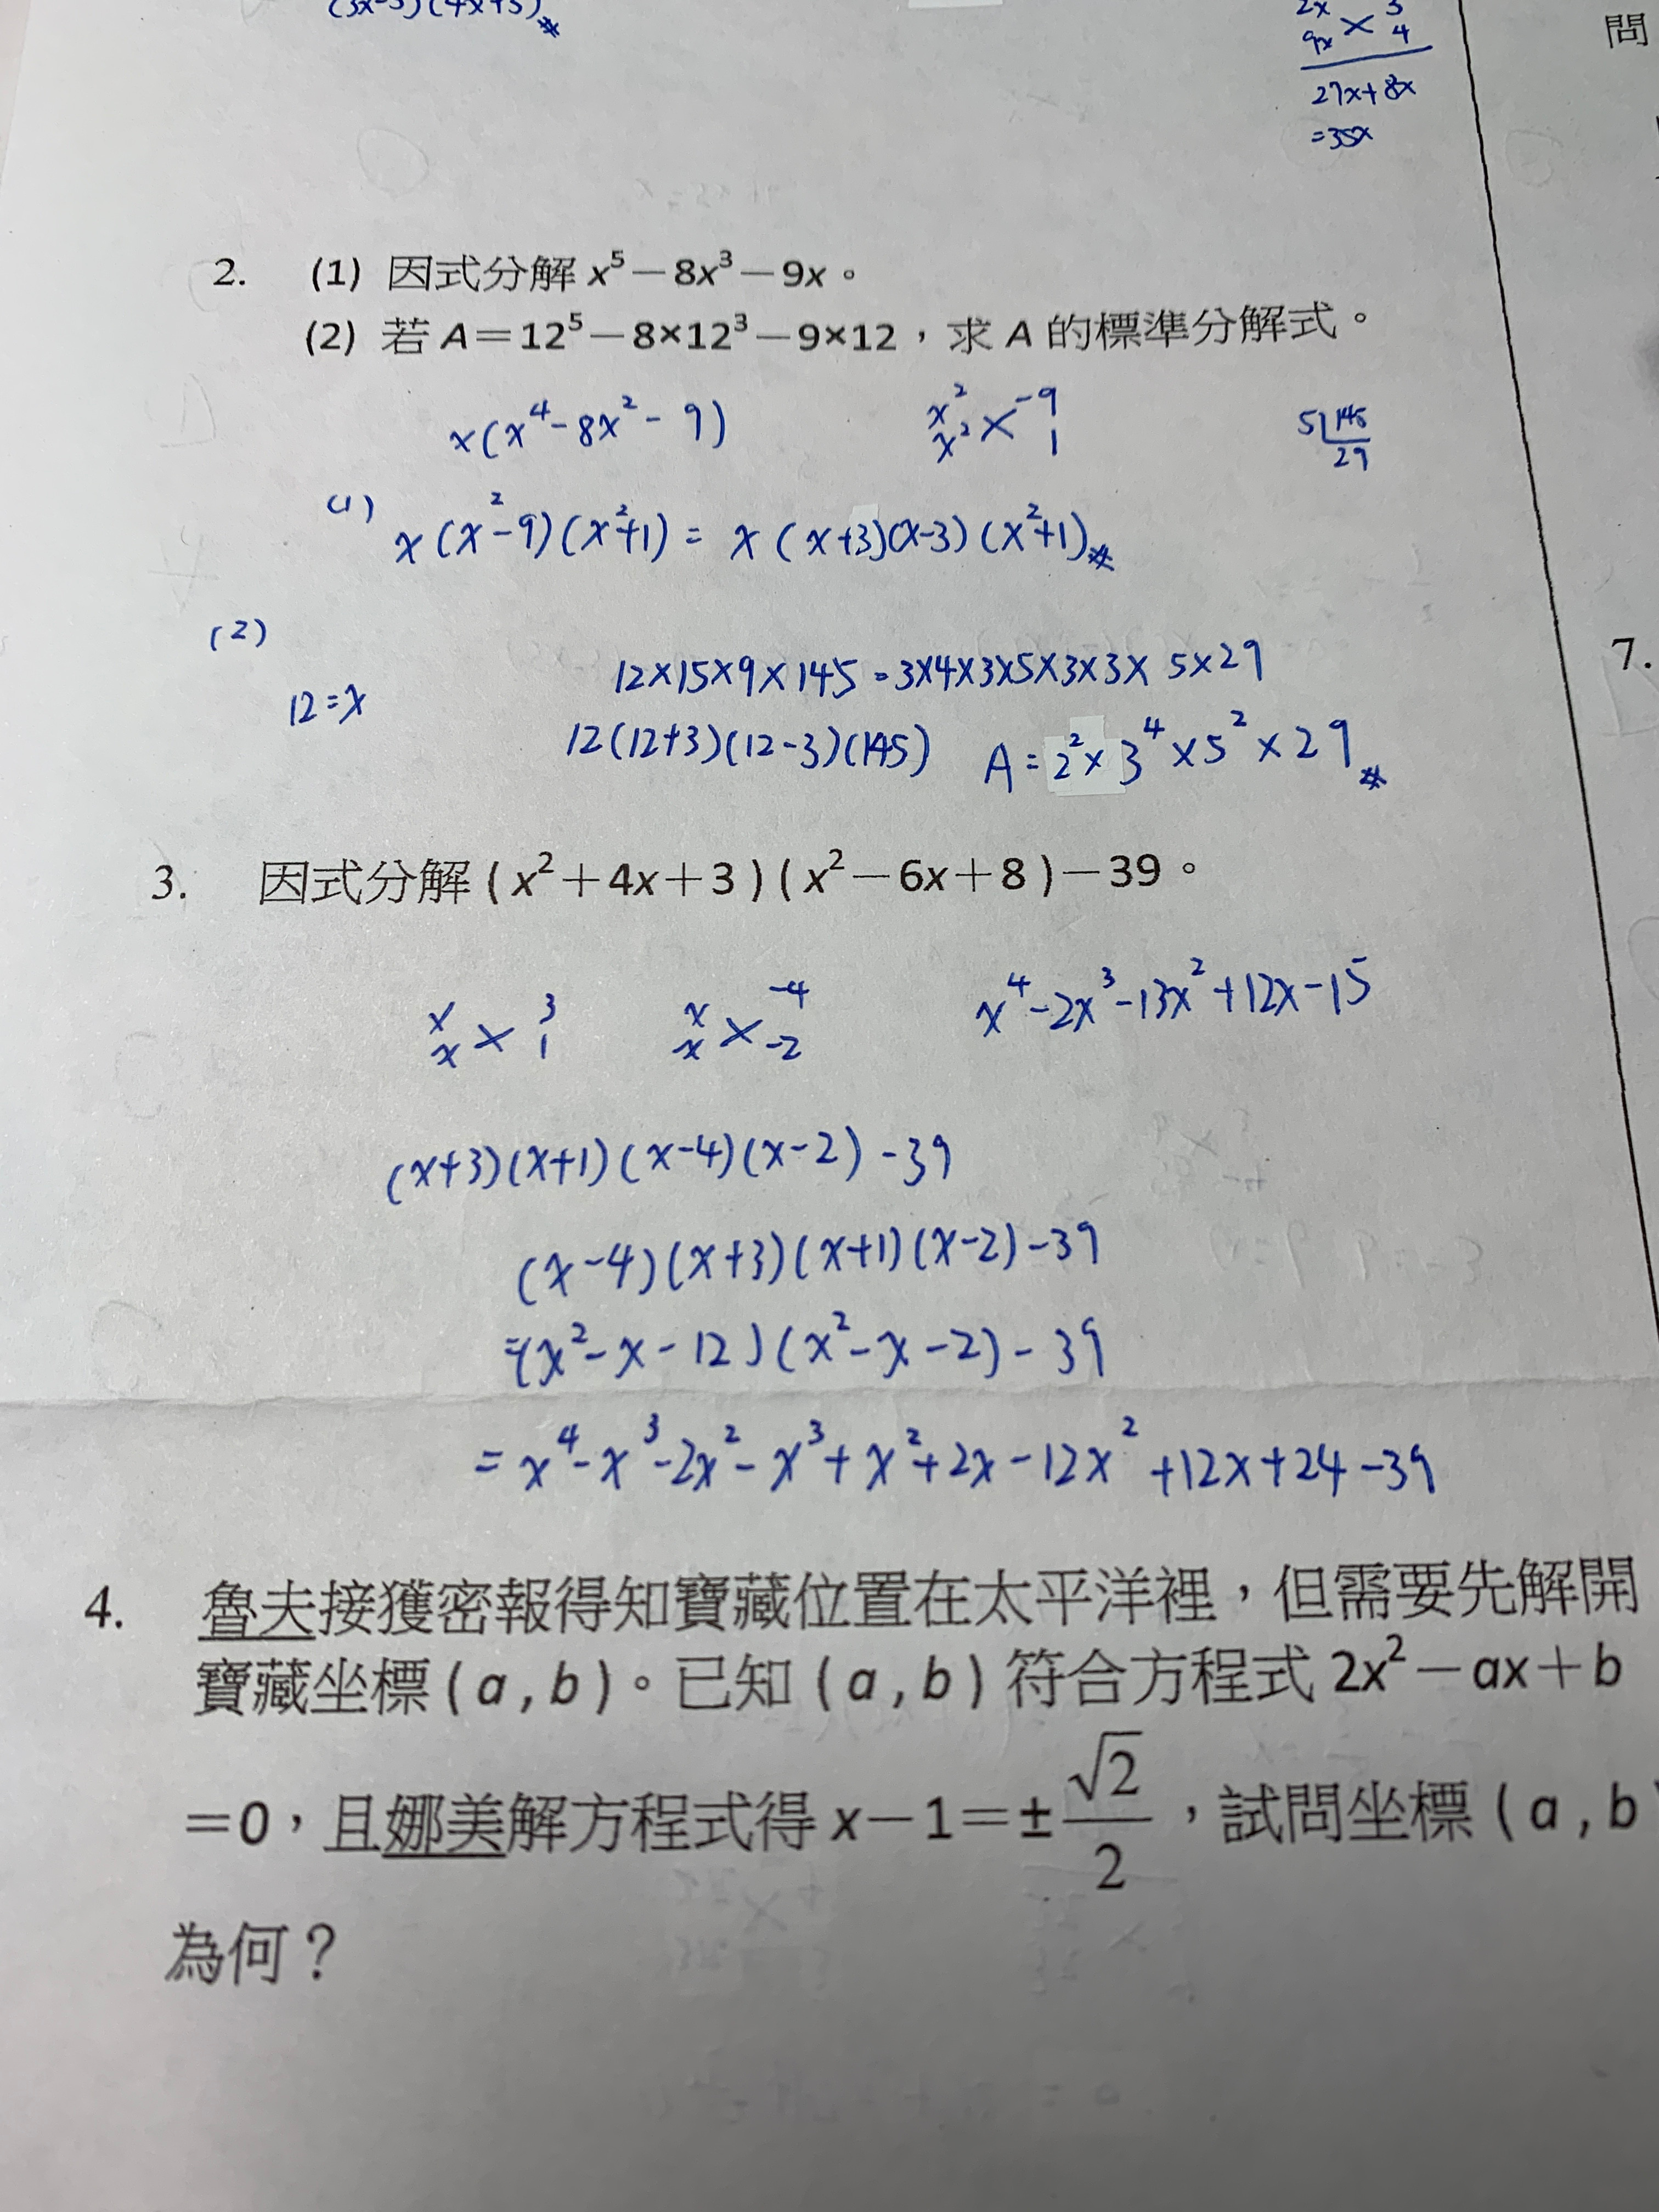 (3x-5)(4x+3)#
2x 3
9x × 4
27x+8x
=35x
問
2. (1) 因式分解 x⁵－8x³－9x。
(2) 若 A＝12⁵－8×12³－9×12，求 A 的標準分解式。
x(x⁴-8x²-9)
x² -9
x² × 1
5|145
29
(1) x(x²-9)(x²+1) = x(x+3)(x-3)(x²+1)#
(2)
12=x
12×15×9×145=3×4×3×5×3×3×5×29
12(12+3)(12-3)(145) A=2²×3⁴×5²×29#
7.
3. 因式分解 (x²＋4x＋3)(x²－6x＋8)－39。
x 3
x × 1
x -4
x × -2
x⁴-2x³-13x²+12x-15
(x+3)(x+1)(x-4)(x-2)-39
(x-4)(x+3)(x+1)(x-2)-39
=(x²-x-12)(x²-x-2)-39
=x⁴-x³-2x²-x³+x²+2x-12x²+12x+24-39
4. 魯夫接獲密報得知寶藏位置在太平洋裡，但需要先解開
寶藏坐標(a,b)。已知(a,b)符合方程式 2x²－ax＋b
＝0，且娜美解方程式得 x－1＝±√2/2，試問坐標(a,b)
為何？